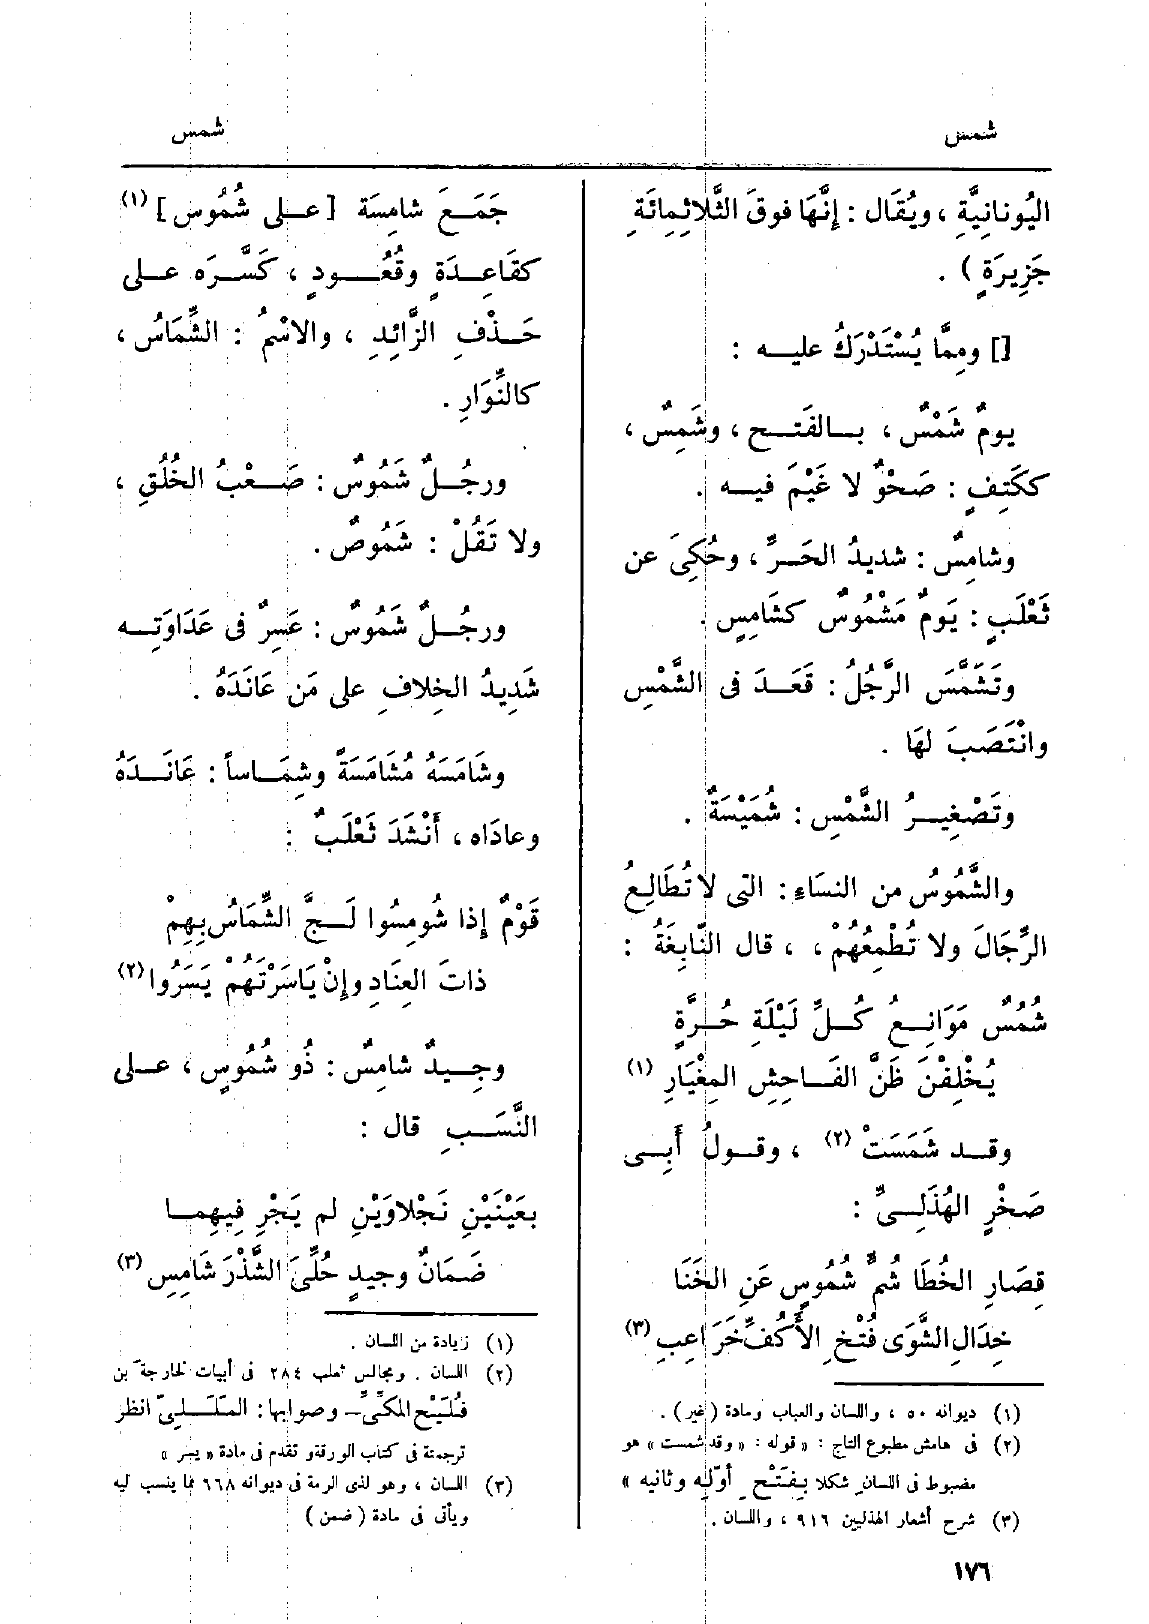 شمس
شمس
اليُونانِيَّةِ ، ويُقَال : إِنَّهَا فوقَ الثَّلاثِمِائَةِ
جَزِيرَةٍ ) .
[] ومِمَّا يُسْتَدْرَكُ عليــه :
يومٌ شَمْسٌ ، بــالفَتــح ، وشَمِسٌ ،
ككَتِفٍ : صَحْوٌ لا غَيْمَ فيــه .
وشامِسٌ : شديدُ الحَــرِّ ، وحُكِىَ عن
ثَعْلَبٍ : يَومٌ مَشْمُوسٌ كشَامِسٍ .
وتَشَمَّسَ الرَّجُلُ : قَعَدَ فى الشَّمْسِ
وانْتَصَبَ لهَا .
وتَصْغِيــرُ الشَّمْسِ : شُمَيْسَةٌ .
والشَّمُوسُ من النسَاءِ : التى لا تُطَالِعُ
الرِّجَالَ ولا تُطْمِعُهُمْ ، ، قال النَّابِغَةُ :
شُمُسٌ مَوَانِــعُ كُــلِّ لَيْلَةِ حُــرَّةٍ
يُخْلِفْنَ ظَنَّ الفَــاحِشِ المِغْيَارِ (١)
وقــد شَمَسَتْ (٢) ، وقــولُ أَبِــى
صَخْرٍ الهُذَلِــىِّ :
قِصَارِ الخُطَا شُمٌّ شُمُوسٍ عَنِ الخَنَا
خِدَالِ الشَّوَى فُتْخِ الأَكُفِّ خَرَاعِبِ (٣)
(١) ديوانه ٥٠ ، واللسان والعباب ومادة (غير) .
(٢) فى هامش مطبوع التاج : « قوله : « وقد شمست » هو
مضبوط فى اللسان شكلا بِفَتْحِ أوّلِه وثانيه »
(٣) شرح أشعار الهذليين ٩١٦ ، واللسان .
جَمَــعَ شامِسَة [ عــلى شُمُوس ] (١)
كقَاعِــدَةٍ وقُعُــودٍ ، كَسَّرَه عــلى
حَــذْفِ الزَّائِدِ ، والاسْمُ : الشِّمَاسُ ،
كالنِّوَارِ .
ورجُــلٌ شَمُوسٌ : صَــعْبُ الخُلُقِ ،
ولا تَقُلْ : شَمُوصٌ .
ورجُــلٌ شَمُوسٌ : عَسِرٌ فى عَدَاوَتِــه
شَدِيدُ الخِلافِ على مَن عَانَدَهُ .
وشَامَسَهُ مُشَامَسَةً وشِمَــاساً : عَانَــدَهُ
وعادَاه ، أَنْشَدَ ثَعْلَبٌ :
قَوْمٌ إِذا شُومِسُوا لَــجَّ الشِّمَاسُ بِهِمْ
ذاتَ العِنَادِ وإِنْ يَاسَرْتَهُمْ يَسَرُوا (٢)
وجِــيدٌ شامِسٌ : ذُو شُمُوسٍ ، عــلى
النَّسَــبِ قال :
بعَيْنَيْنِ نَجْلاوَيْنِ لم يَجْرِ فِيهِمــا
ضَمَانٌ وجيدٍ حُلِّىَ الشَّذْرَ شَامِسِ (٣)
(١) زيادة من اللسان .
(٢) اللسان . ومجالس ثعلب ٢٨٤ فى أبيات لخارجة بن
فُلَيْحٍ المكِّىِّ – وصوابها : المَلَــلِىّ انظر
ترجمته فى كتاب الورقة وتقدم فى مادة « يسر »
(٣) اللسان ، وهو لذى الرمة فى ديوانه ٦٦٨ مما ينسب إليه
ويأتى فى مادة ( ضمن )
١٧٦